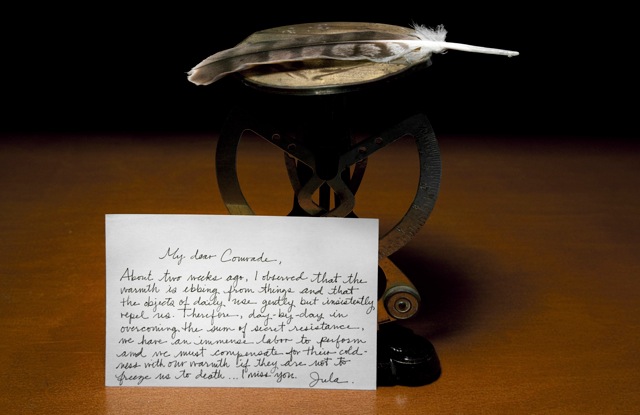 My dear Comrade,
About two weeks ago, I observed that the
warmth is ebbing from things and that
the objects of daily use gently but insistently
repel us. Therefore, day-by-day in
overcoming the sum of secret resistance,
we have an immense labor to perform
and we must compensate for their cold-
ness with our warmth if they are not to
freeze us to death... I miss you. Jula.